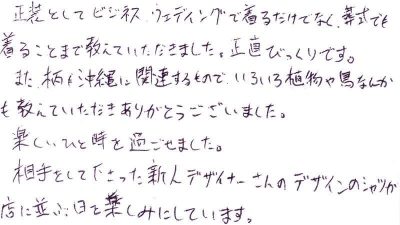 正装として ビジネス、ウェディングで着るだけでなく、葬式でも
着ることまで教えていただきました。正直びっくりです。
また、柄も沖縄に関連するもので、いろいろ植物や鳥なんか
も教えていただきありがとうございました。
楽しいひと時を過ごせました。
相手をして下さった新人デザイナーさんのデザインのシャツが
店に並ぶ日を楽しみにしています。